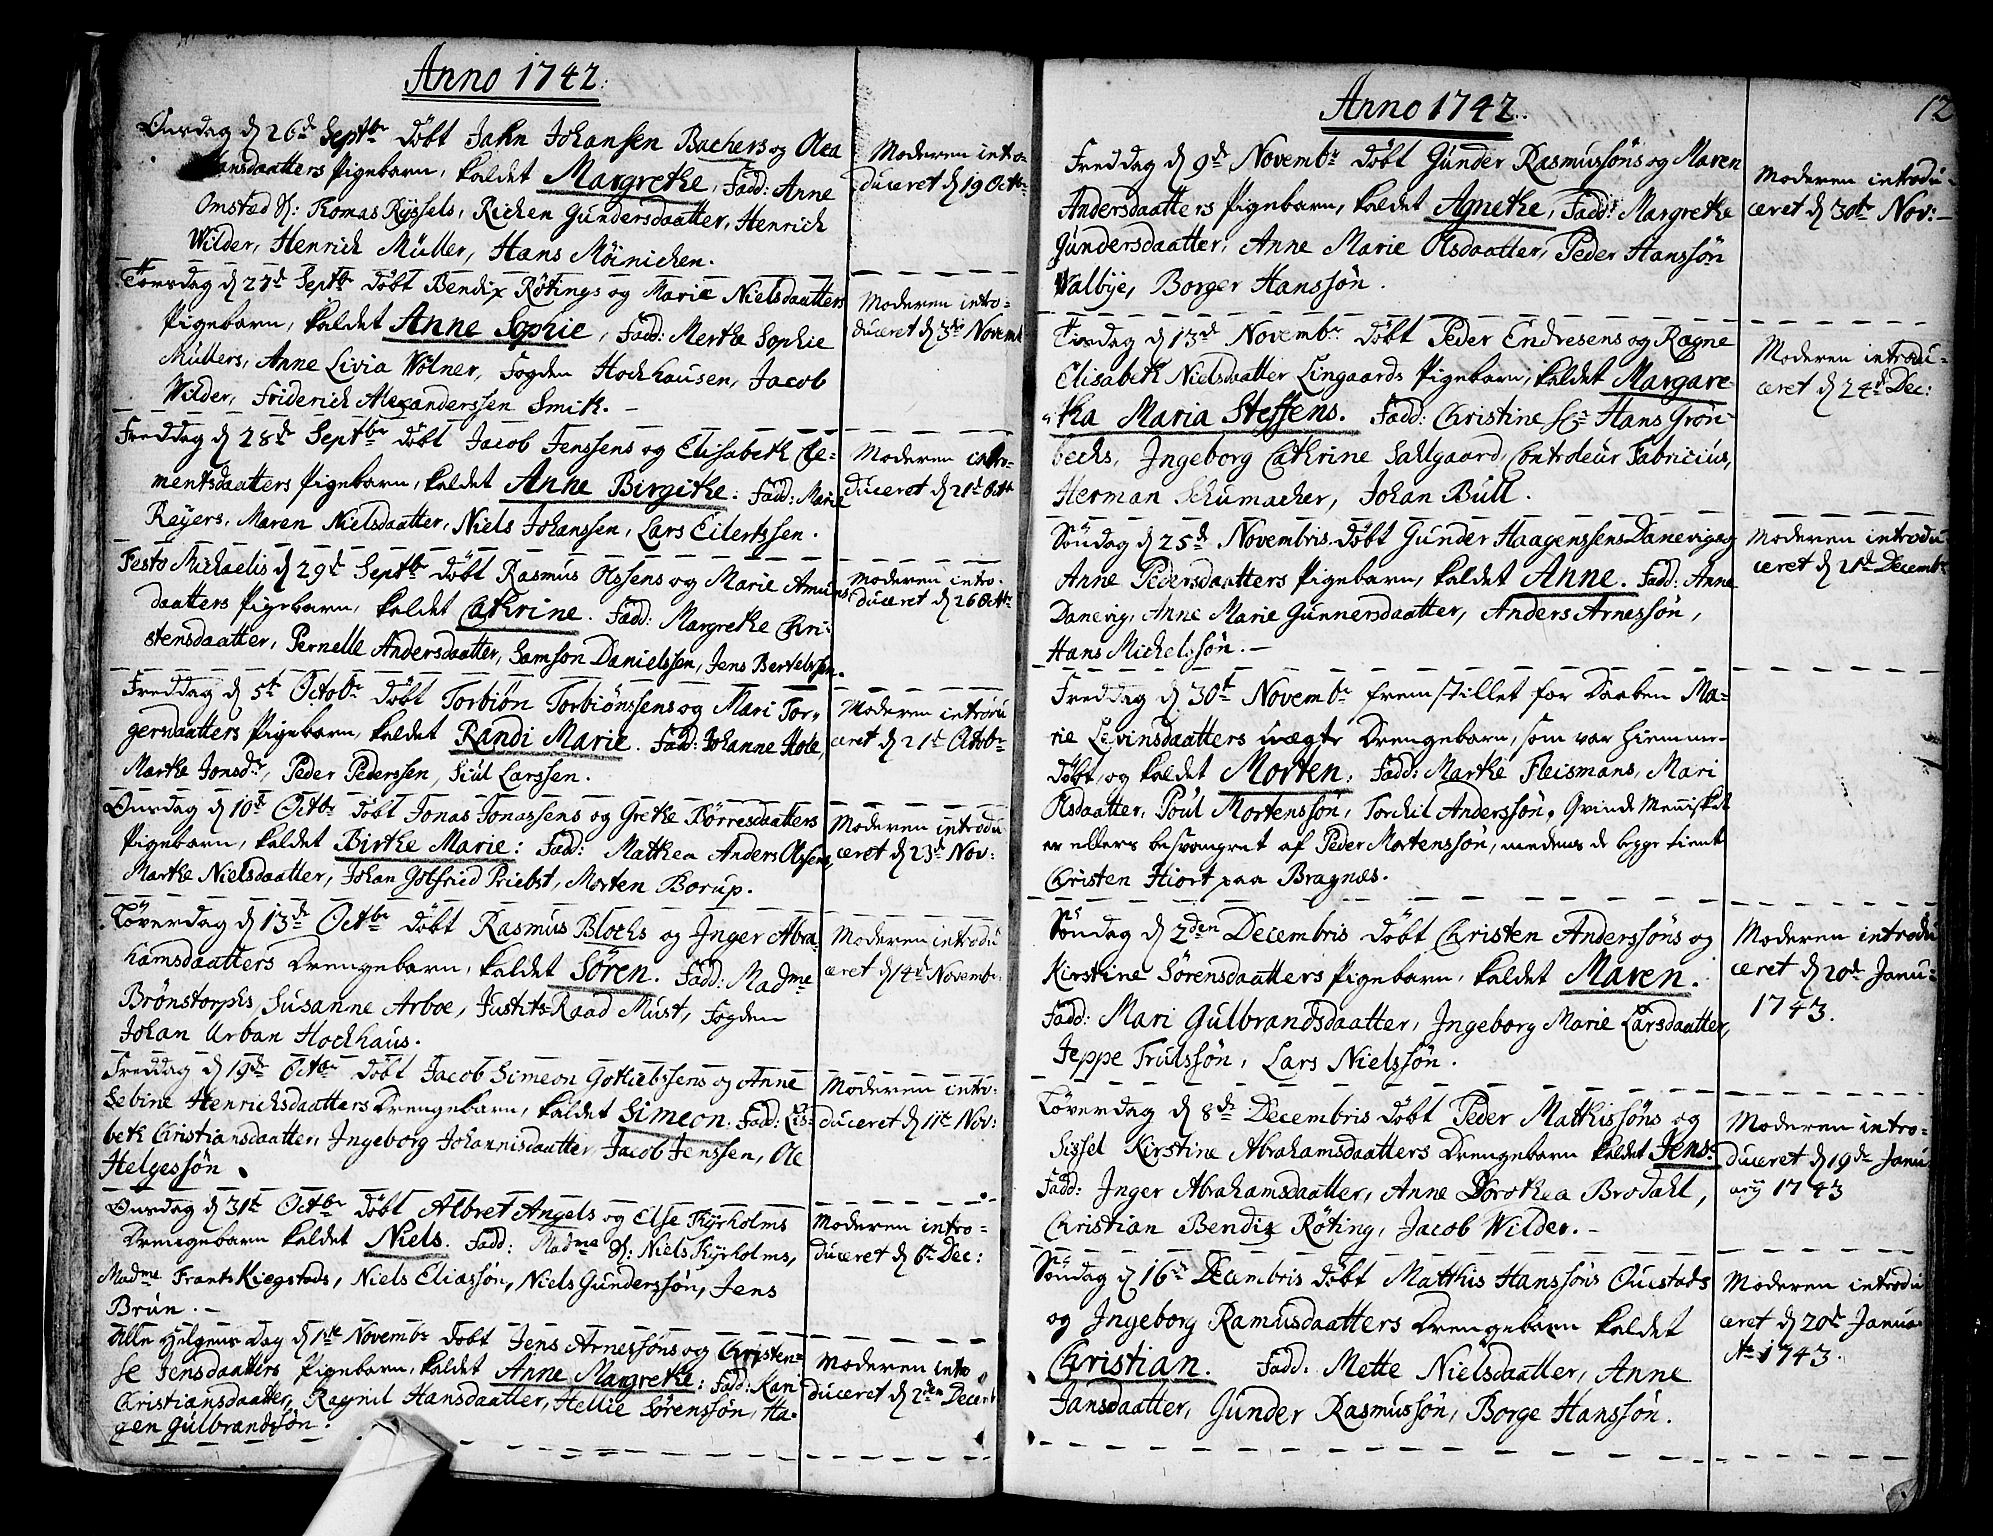 Anno 1742.
Onsdag d 26d Septbr döbt Jahn Johansen Bachers og Olea
Hansdaatters Pigebarn, kaldet Margrethe, Fadd: Anne
Omsted Sl: Thomas Ryssels, Richen Gundersdaatter, Henrich
Wilder, Henrich Müller, Hans Möinichen.
Moderen intro-
duceret d 19 Octbr
Torsdag d 27d Septbr döbt Bendix Rötings og Marie Nielsdaatters
Pigebarn, kaldet Anne Sophie, Fadd: Merthe Sophie
Müllers, Anne Livia Wölner, Fogden Hochhausen, Jacob
Wilder, Friderich Alexanderssen Smith. -
Moderen intro-
duceret d 3die Novemb
Freddag d 28d Septbr döbt Jacob Jenssens og Elisabeth Cle-
mentsdaatters Pigebarn, kaldet Anne Birgithe. Fadd: Marie
Reyers, Maren Nielsdaatter, Niels Johanssen, Lars Eilertssen.
Moderen intro-
duceret d 21d Octb
Festo Michaelis d 29d Septbr döbt Rasmus Olssens og Marie Amunds
daatters Pigebarn, kaldet Cathrine. Fadd: Margrethe Chri-
stensdaatter, Pernelle Andersdaatter, Samson Danielssen, Jens Bertelssen.
Moderen intro-
duceret d 26 Octbr
Freddag d 5t Octobr döbt Torbiön Torbiönssens og Mari Tor-
gersdaatters Pigebarn, kaldet Randi Marie. Fadd: Johanne Hole,
Marthe Jonsdr, Peder Pederssen, Siul Larssen.
Moderen introdu
ceret d 21d Octobr
Onsdag d 10d Octbr döbt Jonas Jonassens og Grethe Börresdaatters
Pigebarn, kaldet Birthe Marie: Fadd: Mathea Anders Olssens,
Marthe Nielsdaatter, Johan Gotfried Priebst, Morten Borup.
Moderen introdu
ceret d 23d Nov:
Löverdag d 13de Octbr döbt Rasmus Blochs og Inger Abra-
hamsdaatters Drengebarn, kaldet Sören. Fadd: Madme
Brönstorphs, Susanne Arboe, Justits-Raad Must, Fogden
Johan Urban Hochhaus.
Moderen introdu
ceret d 14d Novembr.
Freddag d 19de Octbr döbt Jacob Simeon Gotliebssens og Anne
Sebine Henrichsdaatters Drengebarn, kaldet Simeon. Fadd: Lis-
beth Christiansdaatter, Ingeborg Johannisdaatter, Jacob Jenssen, Ole
Helgessön.
Moderen intro-
duceret d 11te Nov:
Onsdag d 31t Octbr döbt Albret Angels og Else Kyrholms
Drengebarn kaldet Niels. Fadd: Madme Sl: Niels Kyrholms,
Madme Frants Kiegstads, Niels Eliassön, Niels Gunderssön, Jens
Brun. -
Moderen intro-
duceret d 6te Dec:
Alle Helgens Dag d 1ste Novembr döbt Jens Arnessöns og Christen-
se Jensdaatters Pigebarn, kaldet Anne Margrethe: Fadd: Kari
Christiansdaatter, Ragnil Hansdaatter, Hellie Sörenssön, Ha-
gen Gulbrandssön.
Moderen intro
duceret d 2den Decemb
12
Anno 1742.
Freddag d 9d Novembr döbt Gunder Rasmussöns og Maren
Andersdaatters Pigebarn, kaldet Agnethe, Fadd: Margrethe
Gundersdaatter, Anne Marie Olsdaatter, Peder Hanssön
Walbye, Borger Hanssön.
Moderen introdu-
ceret d 30te Nov: -
Tirsdag d 13d Novembr döbt Peder Endresens og Ragne
Elisabeth Nielsdaatter Lingaards Pigebarn, kaldet Margare-
tha Maria Steffens. Fadd: Christine Sl. Hans Grön-
bechs, Ingeborg Cathrine Sahlgaard, Controleur Fabricius,
Herman Schumacher, Johan Bull.
Moderen introdu-
ceret d 24d Dec:
Söndag d 25d Novembris döbt Gunder Haagenssens Danevig og
Anne Pedersdaatters Pigebarn, kaldet Anne. Fadd: Anne
Danevig, Anne Marie Gunnersdaatter, Anders Arnessön,
Hans Michelssön. -
Moderen introdu
ceret d 21d Decembr
Freddag d 30t Novembr fremstillet for Daaben Ma-
rie Levinsdaatters uægte Drengebarn, som var hiemme-
döbt, og kaldet Morten. Fadd: Marthe Fleismans, Mari
Olsdaatter, Poul Mortenssön, Torchil Anderssön. Qvinde Mennisket
er ellers besvangret af Peder Mortenssön, medens de begge tiente
Christen Hiort paa Bragnæs.
Söndag d 2den Decembris döbt Christen Anderssöns og
Kirstine Sörensdaatters Pigebarn, kaldet Maren.
Fadd: Mari Gulbrandsdaatter, Ingeborg Marie Larsdaatter,
Jeppe Trulssön, Lars Nielssön.
Moderen introdu
ceret d 20d Janu-
1743.
Löverdag d 8de Decembris döbt Peder Mathissöns og
Sissel Kirstine Abrahamsdaatters Drengebarn kaldet Jens.
Fadd: Inger Abrahamsdaatter, Anne Dorothea Brodahl,
Christian Bendix Röting, Jacob Wilder. -
Moderen intro-
duceret d 19de Janu
ary 1743
Söndag d 16d Decembris döbt Matthis Hanssöns Questads
og Ingeborg Ramusdaatters Drengebarn kaldet
Christian. Fadd. Mette Nielsdaatter, Anne
Jansdaatter, Gunder Rasmussön, Borge Hanssön.
Moderen introdu
ceret d 20d Janua
Ao 1743.